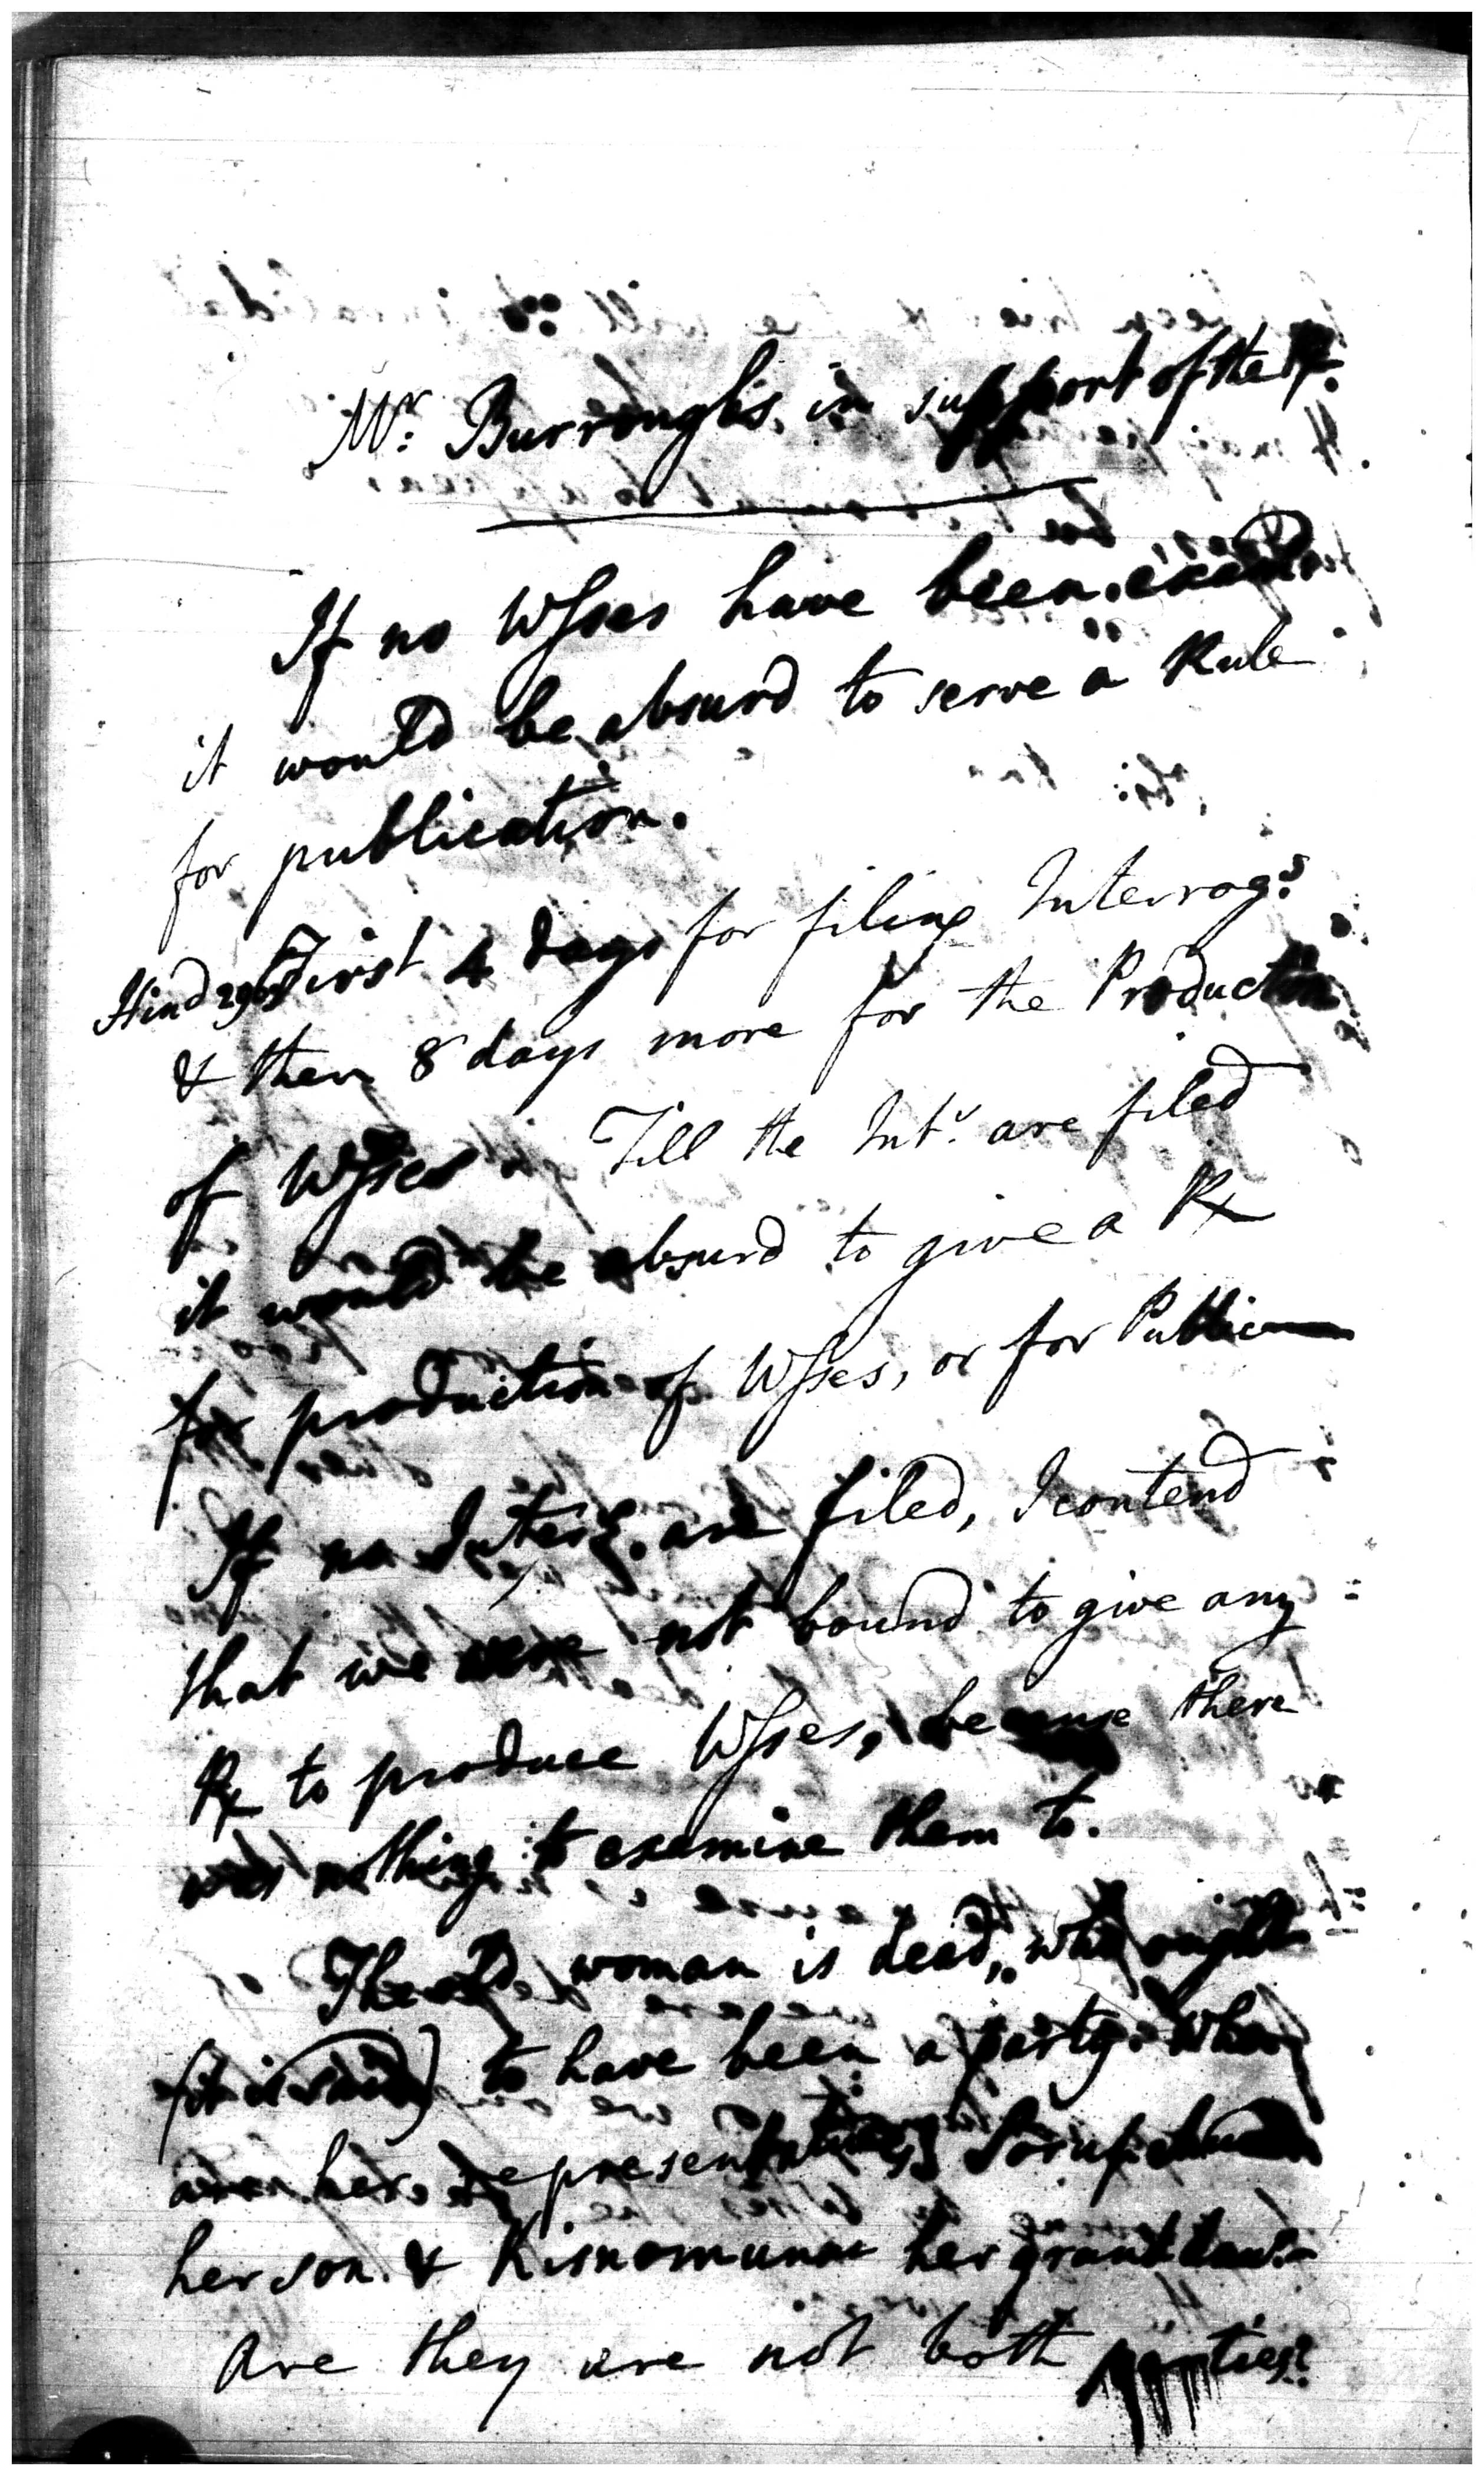 Mr: Burroughs in support of the Rx.
If no Wſses have been exam
it would be absurd to serve a Rule
for publication.
Hind First 4 days for filing Interrog.s
& then 8 days more for the Production
of Wſses. Till the Int.s are filed
it would be absurd to give a Rx
for production of Wſses, or for Public
If no Interg. are filed, I contend
that we were not bound to give any
Rx to produce Wſses, because there
was nothing to examine them to.
The old woman is dead, who ought
(it is said) to have been a party. Who
are her representatives?
her son & Kisnomunne her grand daur.
Are they are not both parties?